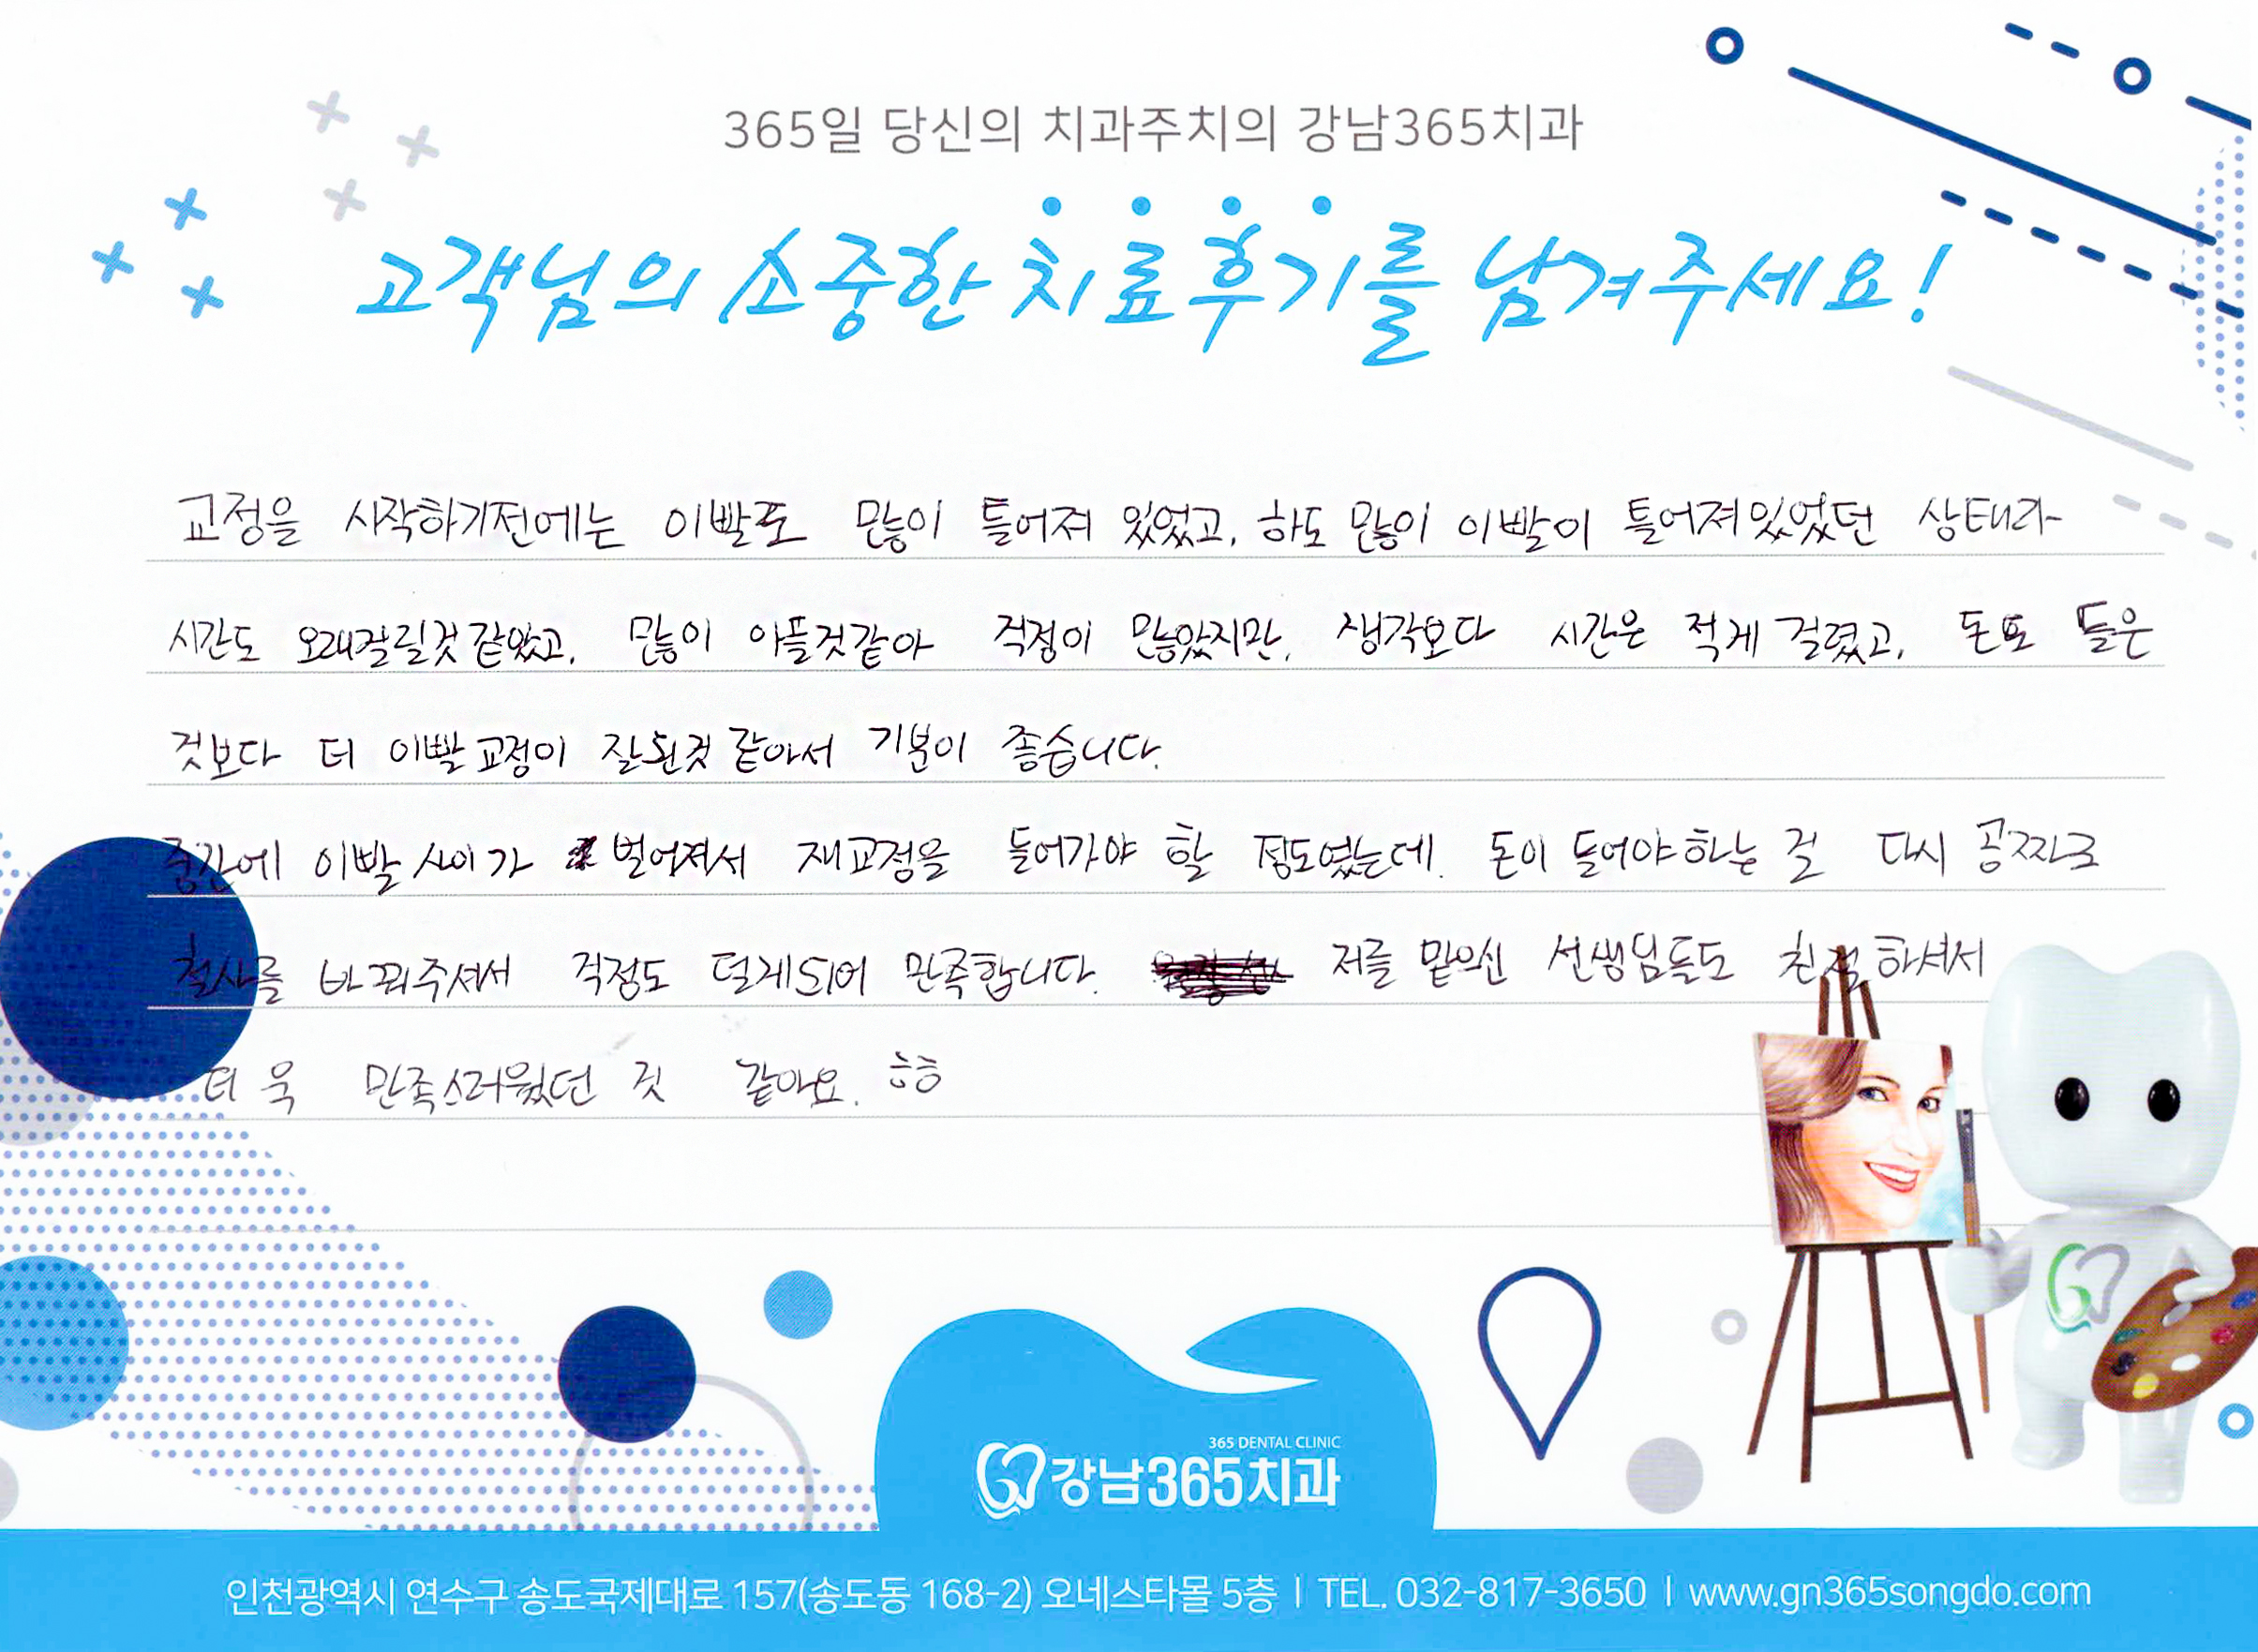 365일 당신의 치과주치의 강남365치과
고객님의 소중한 치료후기를 남겨주세요!
교정을 시작하기전에는 이빨도 많이 틀어져 있었고, 하도 많이 이빨이 틀어져있었던 상태라
시간도 오래걸릴것 같았고, 많이 아플것같아 걱정이 많았지만, 생각보다 시간은 적게 걸렸고, 돈도 들은
것보다 더 이빨교정이 잘된것 같아서 기분이 좋습니다.
중간에 이빨 사이가 벌어져서 재교정을 들어가야 할 정도였는데. 돈이 들어야하는 걸 다시 공짜로
철사를 바꿔주셔서 걱정도 덜게되어 만족합니다. 저를 맡으신 선생님들도 친절하셔서
더욱 만족스러웠던 것 같아요. ㅎㅎ
365 DENTAL CLINIC
강남365치과
인천광역시 연수구 송도국제대로 157(송도동 168-2) 오네스타몰 5층 l TEL. 032-817-3650 l www.gn365songdo.com